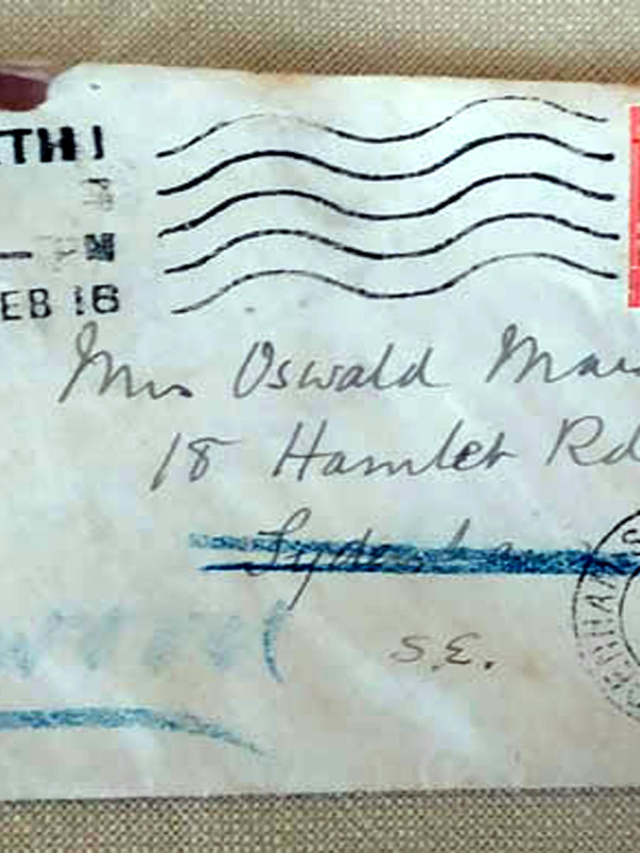 TH I
N
EB 16
Mrs Oswald
18 Hamlet Rd
Sydenha
S.E.